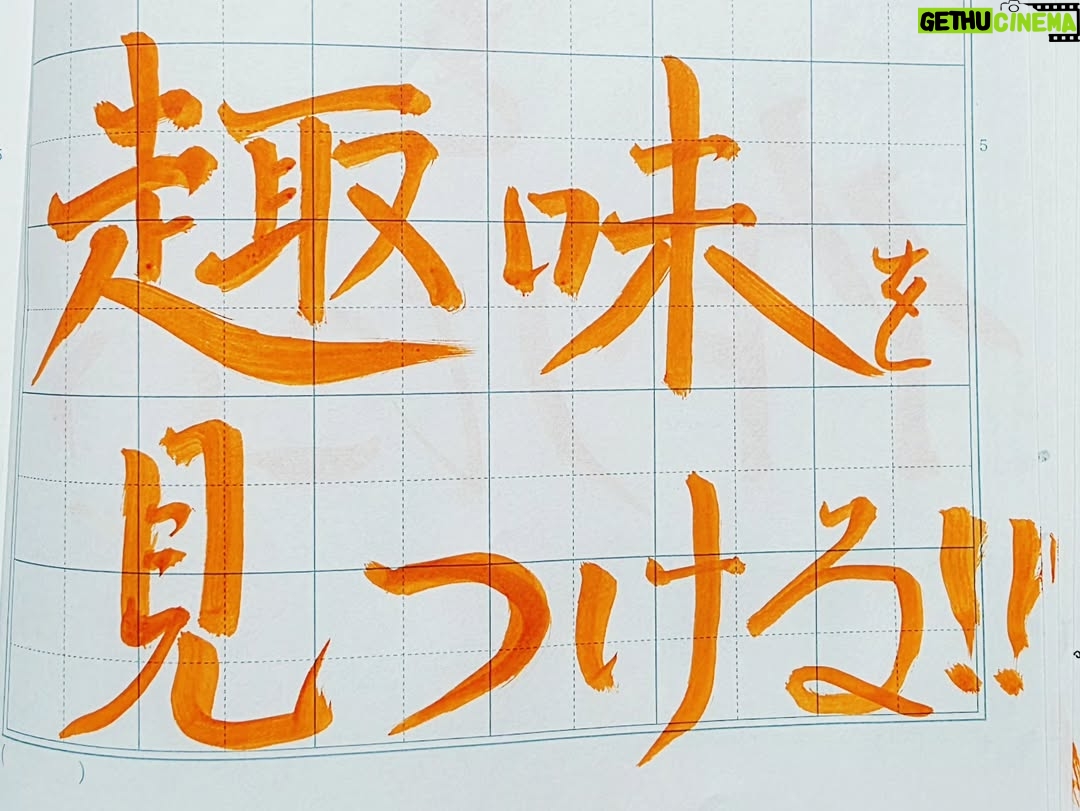 GETHUCINEMA
趣味を
5
見つける!!